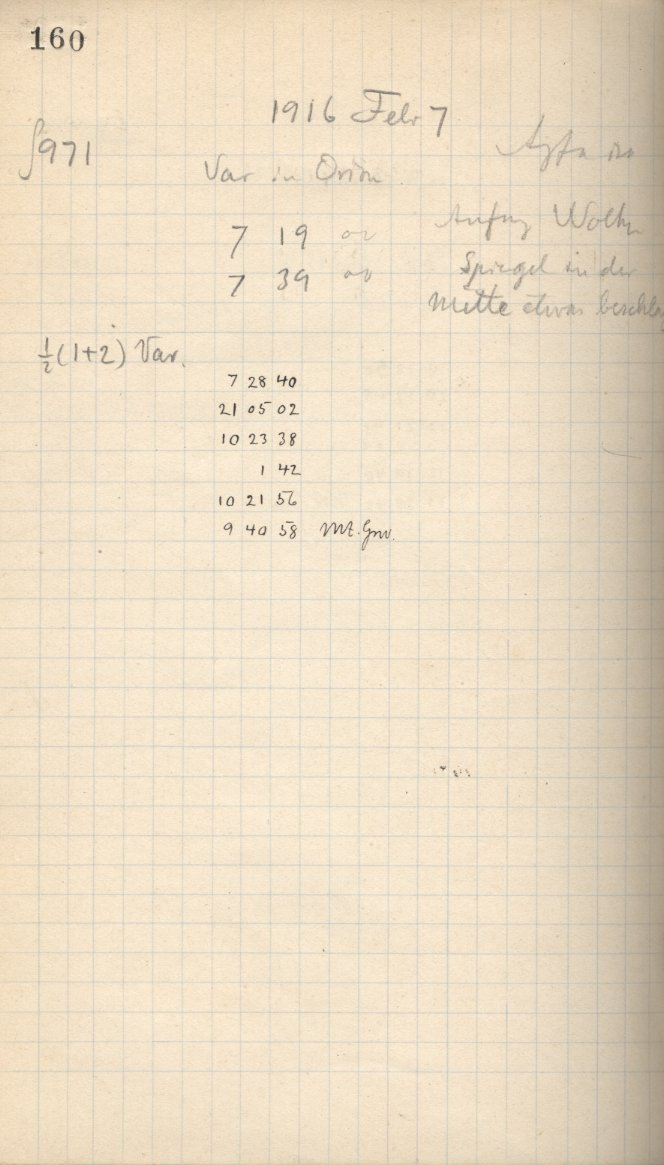 160
1916 Febr 7
∫971
Agfa
Var in Orion
7 19 00
Anfang Wolken
7 39 00
Spiegel in der
Mitte etwas beschla
½(1+2) Var.
7 28 40
21 05 02
10 23 38
1 42
10 21 56
9 40 58 Mt. Gnv.